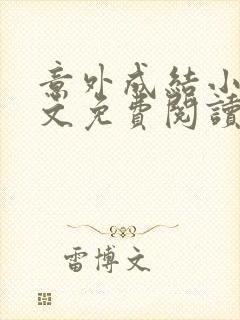 意外成結小
文免費閱讀
雷博文